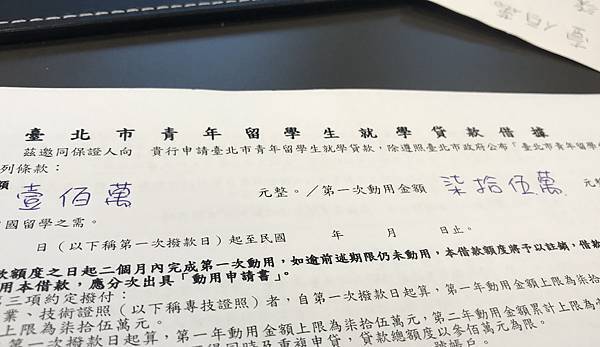 壹佰萬
臺北市青年留學生就學貸款借據
茲邀同保證人向 貴行申請臺北市青年留學生就學貸款,除遵照臺北市政府公布「臺北市青年留學
列條款:
額 壹佰萬 元整。/第一次動用金額 柒拾伍萬 元
國留學之需。
日(以下稱第一次撥款日)起至民國 年 月 日止。
款額度之日起二個月內完成第一次動用,如逾前述期限仍未動用,本借款額度將予以註銷,借款
用本借款,應分次出具「動用申請書」。
第三項約定撥付:
業、技術證照(以下稱專技證照)者,自第一次撥款日起算,第一年動用金額上限為柒拾
上限為柒拾伍萬元。
第一次撥款日起算,第一年動用金額上限為柒拾伍萬元,第二年動用金額累計上限為
得同時及重複申貸,貸款總額度以參佰萬元為限。
號帳戶。